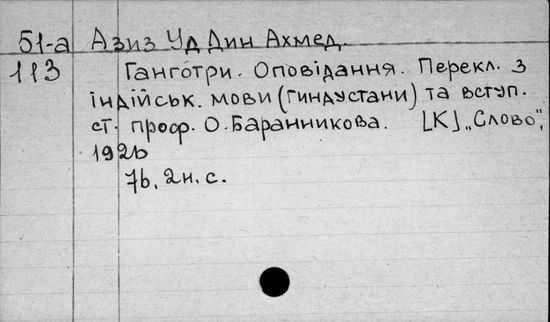 51-а Азиз Уд Дин Ахмед.
113 Ганготри. Оповідання. Перекл. з
індійськ. мови (гиндустани) та вступ.
ст. проф. О. Баранникова. [К], „Слово",
1926
76, 2н. с.